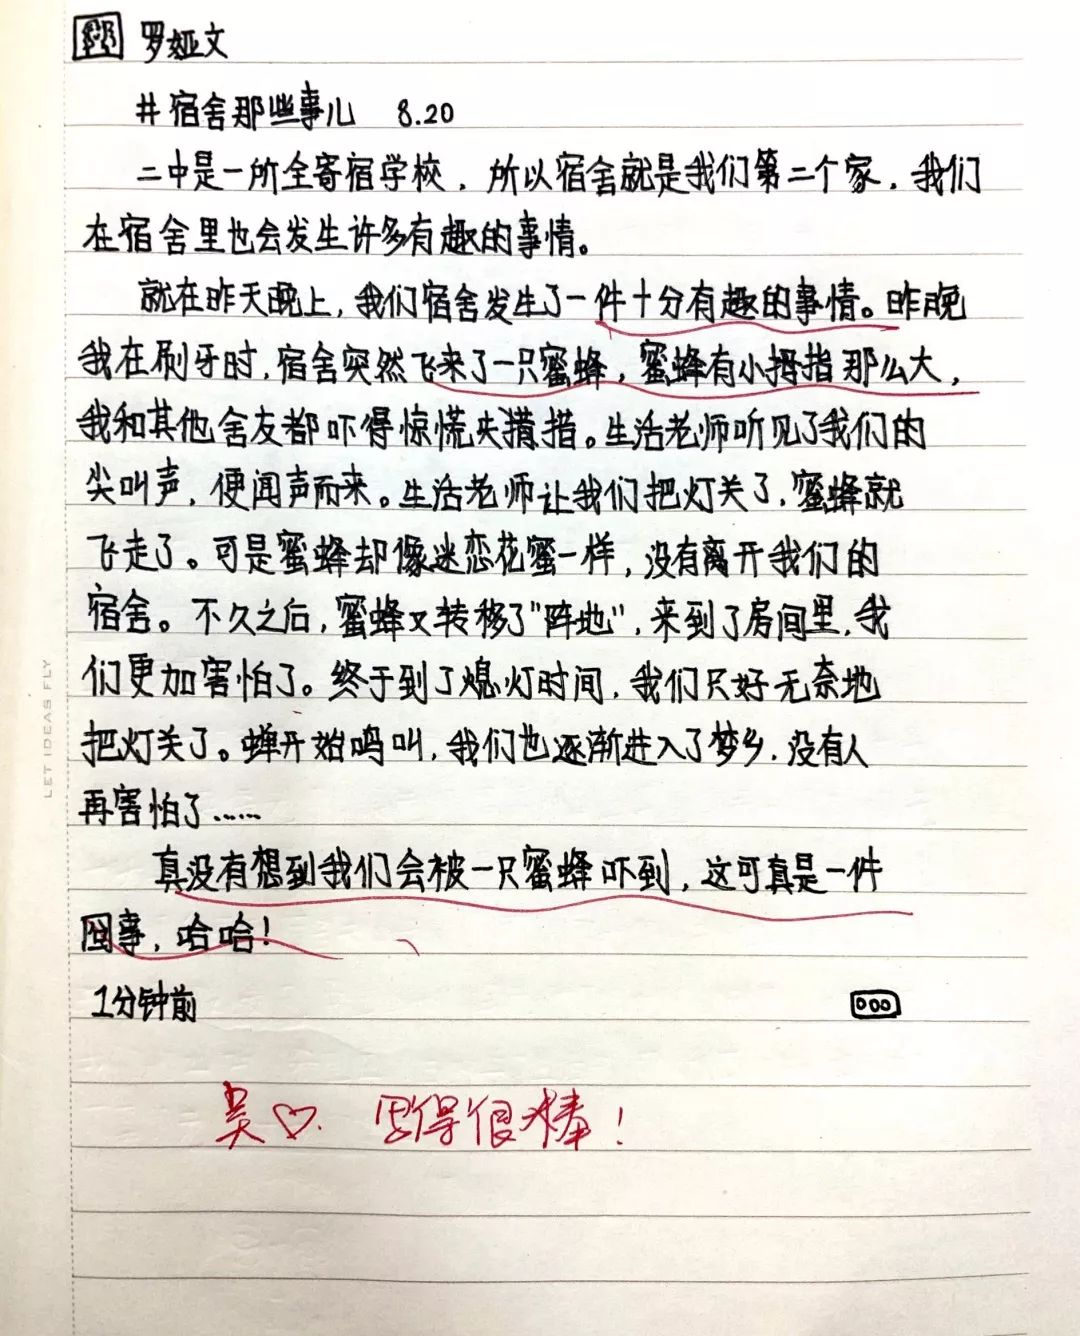 罗娅文
#宿舍那些事儿 8.20
二中是一所全寄宿学校，所以宿舍就是我们第二个家，我们
在宿舍里也会发生许多有趣的事情。
就在昨天晚上，我们宿舍发生了一件十分有趣的事情。昨晚
我在刷牙时，宿舍突然飞来了一只蜜蜂，蜜蜂有小拇指那么大，
我和其他舍友都吓得惊慌失措。生活老师听见了我们的
尖叫声，便闻声而来。生活老师让我们把灯关了，蜜蜂就
飞走了。可是蜜蜂却像迷恋花蜜一样，没有离开我们的
宿舍。不久之后，蜜蜂又转移了"阵地"，来到了房间里，我
们更加害怕了。终于到了熄灯时间，我们只好无奈地
把灯关了。蝉开始鸣叫，我们也逐渐进入了梦乡，没有人
再害怕了……
真没有想到我们会被一只蜜蜂吓到，这可真是一件
囧事，哈哈！
1分钟前
吴♡. 写得很棒！
LET IDEAS FLY